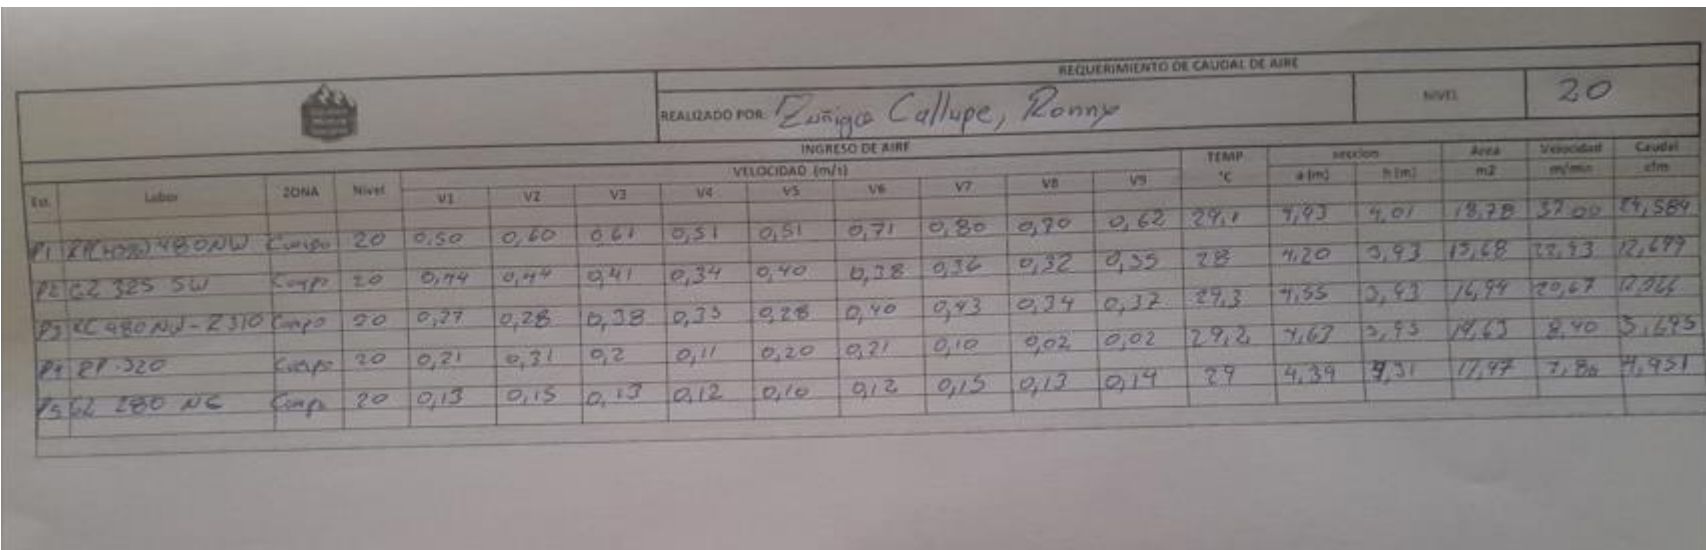 REQUERIMIENTO DE CAUDAL DE AIRE
REALIZADO POR: Zuñiga Callupe, Ronny NIVEL 20
INGRESO DE AIRE
VELOCIDAD (m/s) TEMP seccion Area Velocidad Caudal
Est. Labor ZONA Nivel V1 V2 V3 V4 V5 V6 V7 V8 V9 °C a (m) h (m) m2 m/min cfm
P1 480NW Cuerpo 20 0,50 0,60 0,61 0,51 0,51 0,71 0,80 0,70 0,62 29,1 4,93 4,01 18,78 37,00 24,584
P2 GZ 325 SW Cuerpo 20 0,44 0,44 0,41 0,34 0,40 0,38 0,36 0,32 0,35 28 4,20 3,93 15,68 22,93 12,699
P3 480 NW - Z310 Cuerpo 20 0,27 0,28 0,38 0,33 0,28 0,40 0,43 0,34 0,37 29,3 4,55 3,93 16,94 20,67
P4 RP 320 Cuerpo 20 0,21 0,31 0,2 0,11 0,20 0,21 0,10 0,02 0,02 29,2 4,63 3,93 8,40
P5 GZ 280 NE Cuerpo 20 0,13 0,15 0,13 0,12 0,10 0,12 0,15 0,13 0,14 29 4,39 4,31 17,97 7,80 4,951